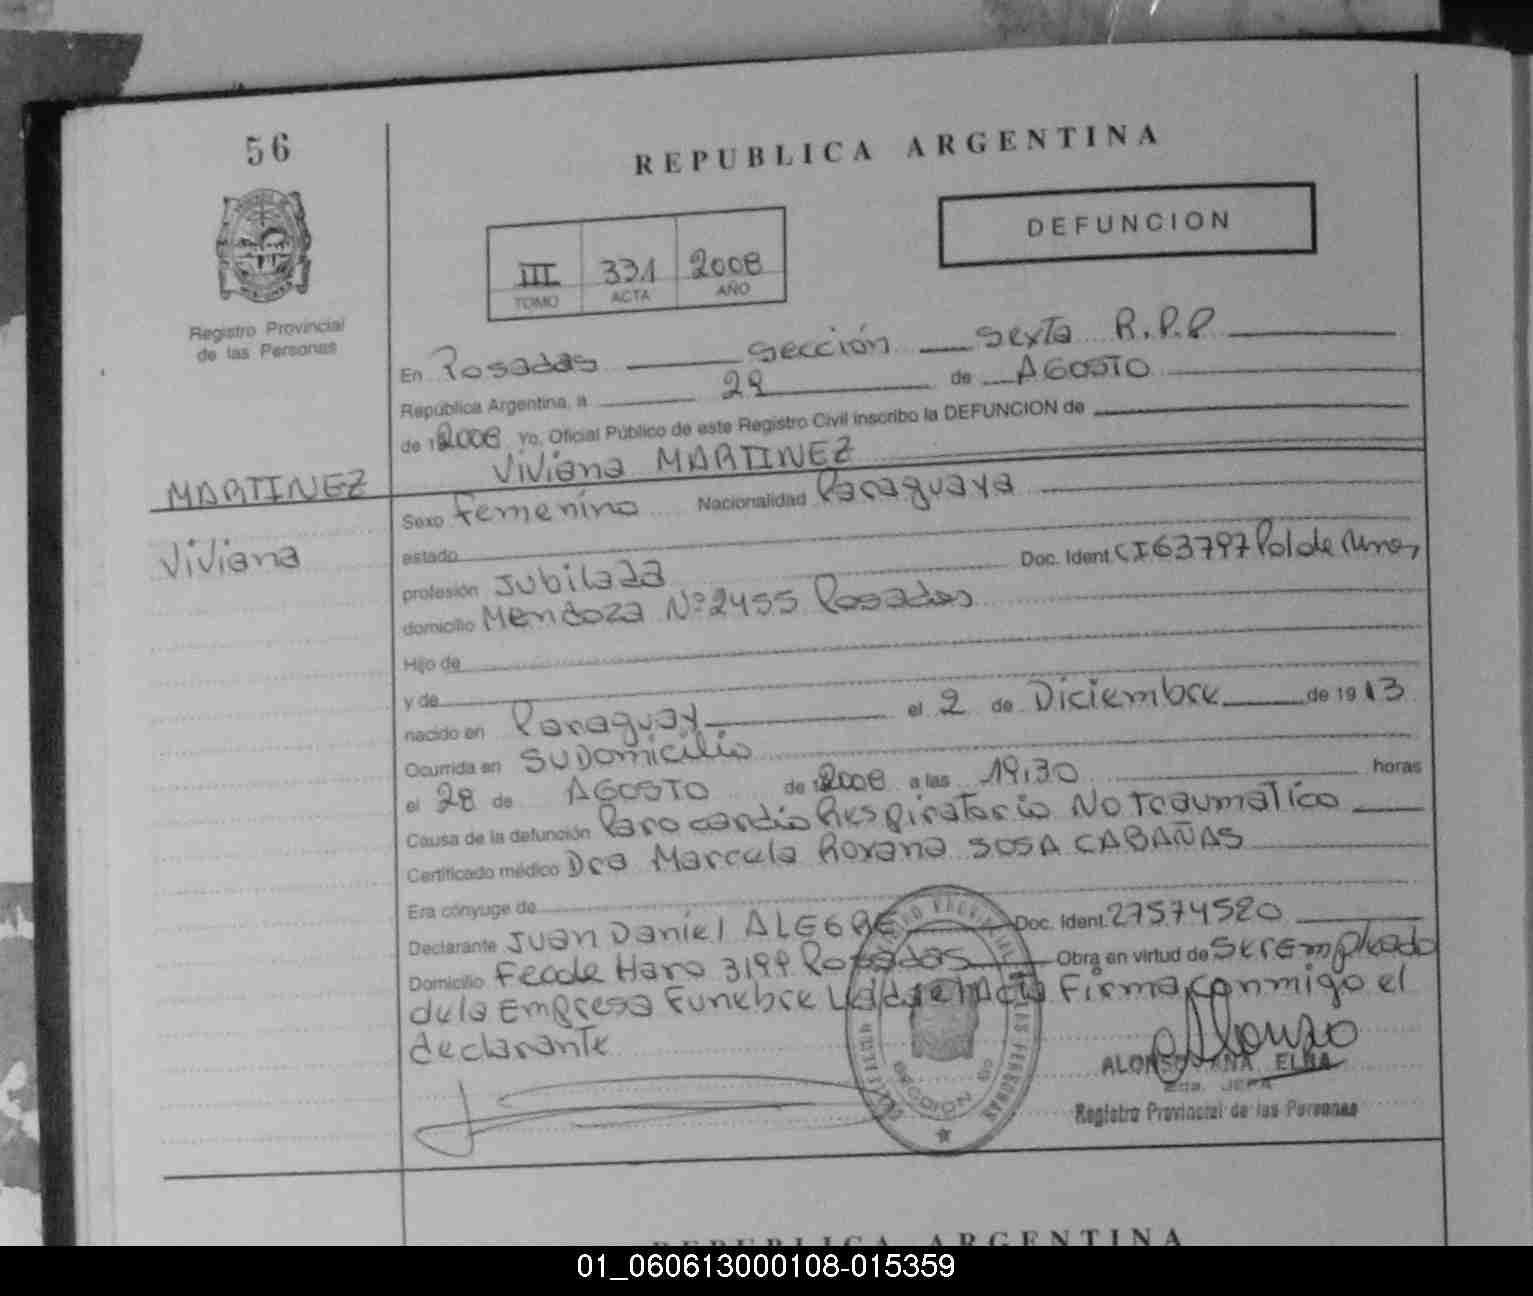 56
REPUBLICA ARGENTINA
DEFUNCION
III 331 2008
TOMO ACTA AÑO
Registro Provincial
de las Personas
En Posadas sección sexta R.P.P
República Argentina, a 29 de AGOSTO
de 2008 Yo, Oficial Público de este Registro Civil inscribo la DEFUNCION de
Viviana MARTINEZ
MARTINEZ
Viviana
Sexo Femenino Nacionalidad Paraguaya
estado
profesión Jubilada Doc. Ident. CI63797 Pol de
domicilio Mendoza Nº 2455 Posadas
Hijo de
y de
nacido en Paraguay el 2 de Diciembre de 1913
Ocurrida en su Domicilio
el 28 de AGOSTO de 2008 a las 19,30 horas
Causa de la defunción Paro cardio Respiratorio No Traumatico
Certificado médico Dra Marcela Roxana SOSA CABAÑAS
Era cónyuge de
Declarante Juan Daniel ALEGRE Doc. Ident. 27574520
Domicilio Fecde Haro 3199 Posadas Obra en virtud de Ser Empleado
de la Empresa Funebre Firma conmigo el
declarante
Alonso
ALONSO ANA ELBA
JEFA
Registro Provincial de las Personas
REPUBLICA ARGENTINA
01_060613000108-015359